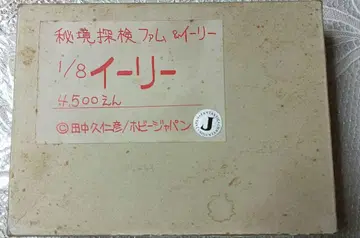 秘境探検 ファム&イーリー
1/8 イーリー
4500えん
©田中久仁彦/ホビージャパン
J